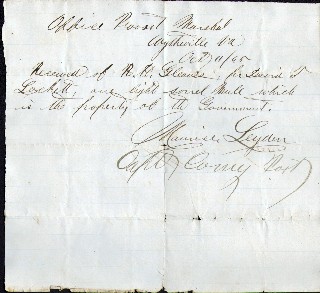 Office Provost Marshal
Wytheville Va
Oct 11/65
Received of R. R. for David T
Lockett, one light sorrel Mule which
is the property of the Government.
Maurice Leydon
Capt Comg Post